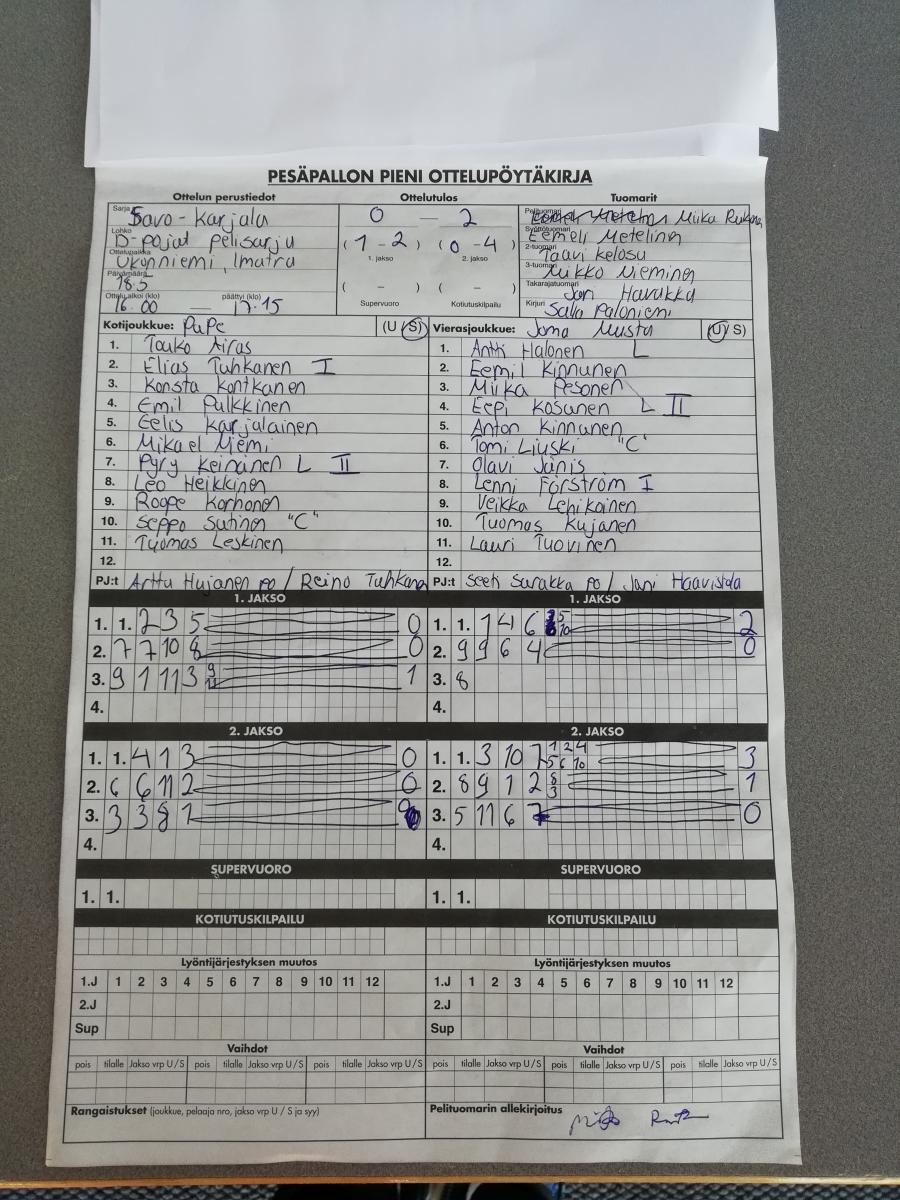 PESÄPALLON PIENI OTTELUPÖYTÄKIRJA
Ottelun perustiedot Ottelutulos Tuomarit
Sarja Savo-Karjala
Lohko D-pojat pelisarja
Ottelupaikka Ukonniemi, Imatra
Päivämäärä 18.5
Ottelu alkoi (klo) päättyi (klo)
16.00 — 17.15
0 — 2
(1 - 2) (0 - 4)
1. jakso 2. jakso
( - ) ( - )
Supervuoro Kotiutuskilpailu
Pelituomari Miika
Syöttötuomari Eemeli Metelinen
2-tuomari Taavi Kelosu
3-tuomari Mikko Nieminen
Takarajatuomari Jari Havukka
Kirjuri Salla Paloniemi
Kotijoukkue: PuPe (U/S)
1. Touko Airas
2. Elias Tuhkanen I
3. Konsta Kontkanen
4. Emil Pulkkinen
5. Eelis Karjalainen
6. Mikael Niemi
7. Pyry Keinänen L II
8. Leo Heikkinen
9. Roope Korhonen
10. Seppo Sutinen "C"
11. Tuomas Leskinen
12.
PJ:t Arttu Hujanen PO / Reino Tuhkanen
Vierasjoukkue: Joma Musta (U/S)
1. Antti Halonen L
2. Eemil Kinnunen
3. Miika Pesonen
4. Eepi Kosunen L II
5. Anton Kinnunen
6. Tomi Liuski "C"
7. Olavi Jänis
8. Lenni Forsström I
9. Veikka Lehikoinen
10. Tuomas Kujanen
11. Lauri Tuovinen
12.
PJ:t Seeti Surakka PO / Jani Haavisto
1. JAKSO
1. 1. 2 3 5 0
2. 7 7 10 8 0
3. 9 1 11 3 9 11 1
4.
1. JAKSO
1. 1. 7 4 6 5 10 2
2. 9 9 6 4 0
3. 8
4.
2. JAKSO
1. 1. 4 1 3 0
2. 6 6 11 2 0
3. 3 3 8 1 0
4.
2. JAKSO
1. 1. 3 10 7 1 2 4 5 6 10 3
2. 8 9 1 2 8 3 1
3. 5 11 6 7 0
4.
SUPERVUORO SUPERVUORO
1. 1. 1. 1.
KOTIUTUSKILPAILU KOTIUTUSKILPAILU
Lyöntijärjestyksen muutos Lyöntijärjestyksen muutos
1.J 1 2 3 4 5 6 7 8 9 10 11 12 1.J 1 2 3 4 5 6 7 8 9 10 11 12
2.J 2.J
Sup Sup
Vaihdot Vaihdot
pois tilalle Jakso vrp U/S pois tilalle Jakso vrp U/S pois tilalle Jakso vrp U/S pois tilalle Jakso vrp U/S pois tilalle Jakso vrp U/S pois tilalle Jakso vrp U/S
Rangaistukset (joukkue, pelaaja nro, jakso vrp U / S ja syy) Pelituomarin allekirjoitus